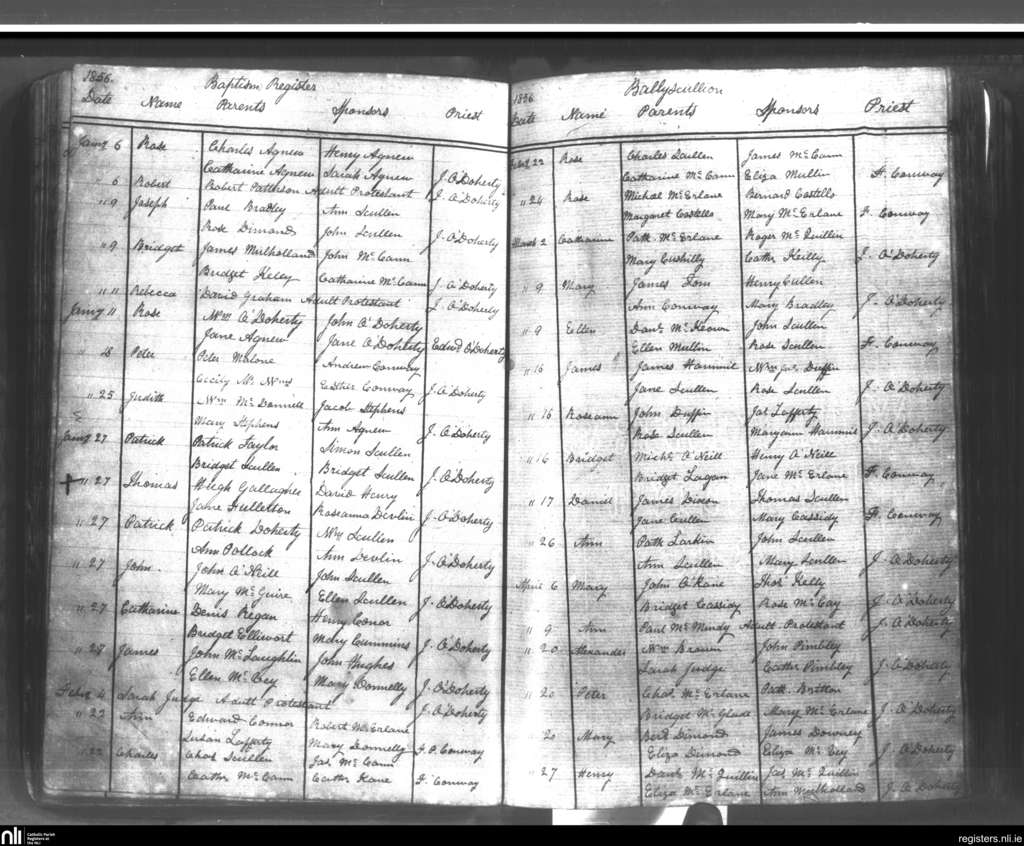 1856.
Baptism Register
Date Name Parents Sponsors Priest
Jany 6 Rose Charles Agnew Henry Agnew
Catharine Agnew Sarah Agnew J. O'Doherty
" 6 Robert Robert Patterson Adult Protestant J. O'Doherty
" 9 Joseph Paul Bradley Ann Scullen
Rose Dimond John Scullen J. O'Doherty
" 9 Bridget James Mulholland John McCann
Bridget Keley Catharine McCann J. O'Doherty
" 11 Rebecca David Graham Adult Protestant J. O'Doherty
Jany 11 Rose Wm O'Doherty John O'Doherty
Jane Agnew Jane O'Doherty Edwd O'Doherty
" 18 Peter Peter Malone Andrew Conway
Cecily Esther Conway J. O'Doherty
" 25 Judith Wm McDonnell Jacob Stephens
Mary Stephens Ann Agnew J. O'Doherty
Jany 27 Patrick Patrick Taylor Simon Scullen
Bridget Scullen Bridget Scullen J. O'Doherty
" 27 Thomas Hugh Gallagher David Henry
Jane Hulletson Roseanna Devlin J. O'Doherty
" 27 Patrick Patrick Doherty Wm Scullen
Ann Pollock Ann Devlin J. O'Doherty
" 27 John John O'Neill John Scullen
Mary McGuire Ellen Scullen J. O'Doherty
" 27 Catharine Denis Regan Henry Conor
Bridget Mary Cummins J. O'Doherty
" 27 James John McLaughlin John Hughes
Ellen McCey Mary Donnelly J. O'Doherty
Feby 4 Sarah Judge Adult Protestant J. O'Doherty
" 23 Ann Edward Connor Robert McErlane
Susan Lafferty Mary Donnelly F. P. Conway
" 22 Charles Chas Scullen Jas McCann
Cathr McCann Cathr Kane F. Conway
1856
Ballyscullion
Date Name Parents Sponsors Priest
Feby 22 Rose Charles Scullen James McCann
Catharine McCann Eliza Mullin F. Conway
" 24 Rose Michael McErlane Bernard Costello
Margaret Costello Mary McErlane F. Conway
March 2 Catharine Patk McErlane Roger McQuillin
Mary Cushilly Cathr Keilly J. O'Doherty
" 9 Mary James Tom Henry Cullen
Ann Conway Mary Bradley J. O'Doherty
" 9 Ellen Danl McKeown John Scullen
Ellen Mullin Rose Scullen F. Conway
" 16 James James Hammil Duffin
Jane Scullen Rose Scullen J. O'Doherty
" 16 Roseann John Duffin Jas Lafferty
Rose Scullen Maryann Hammil J. O'Doherty
" 16 Bridget Michl O'Neill Henry O'Neill
Bridget Lagan Jane McErlane F. Conway
" 17 Daniel James Dixon Thomas Scullen
Jane Cullen Mary Cassidy F. Conway
" 26 Ann Patk Larkin John Scullen
Ann Scullen Mary Scullen J. O'Doherty
April 6 Mary John O'Kane Thos Kelly
Bridget Cassidy Rose McCay J. O'Doherty
" 9 Ann Paul McMurdy Adult Protestant J. O'Doherty
" 20 Alexander Wm Brown John Pimbley
Sarah Judge Cathr Pimbley J. O'Doherty
" 20 Peter Chas McErlane Patk Britton
Bridget McGlade Mary McErlane J. O'Doherty
20 Mary Berd Dimond James Downey
Eliza Dimond Eliza McCey J. O'Doherty
" 27 Henry Danl McQuillin Jas McQuillin
Eliza McErlane Ann Mulholland J. O'Doherty
nli Catholic Parish
Registers at
the NLI
registers.nli.ie